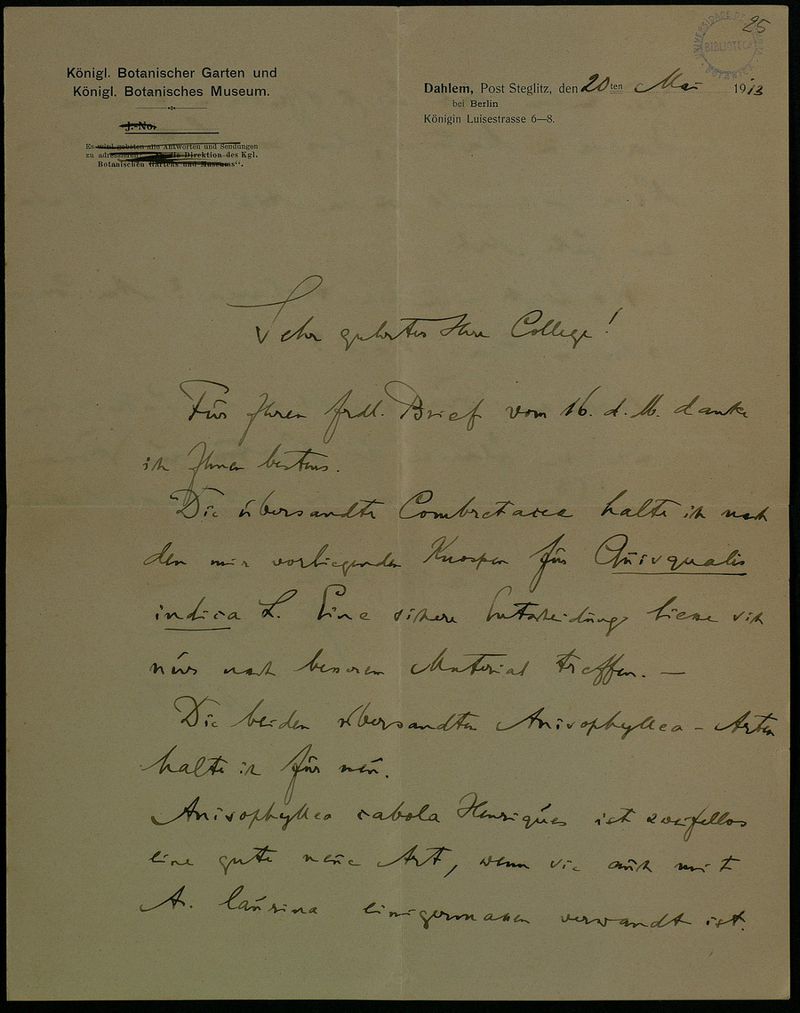 25
UNIVERSIDADE DE COIMBRA
BIBLIOTECA
BOTANICA
Königl. Botanischer Garten und
Königl. Botanisches Museum.
J.-No.
Es wird gebeten alle Antworten und Sendungen
zu adressieren: die Direktion des Kgl.
Botanischen Gartens und Museums“.
Dahlem, Post Steglitz, den 20ten Mai 1913
bei Berlin
Königin Luisestrasse 6—8.
Sehr geehrter Herr College!
Für Ihren frdl. Brief vom 16. d. M. danke
ich Ihnen bestens.
Die übersandte Combretacee halte ich nach
den mir vorliegenden Knospen für Quisqualis
indica L. Eine sichere Entscheidung liesse sich
nur nach besserem Material treffen. —
Die beiden übersandten Anisophyllea-Arten
halte ich für neu.
Anisophyllea cabola Henriques ist zweifellos
eine gute neue Art, wenn sie auch mit
A. laurina einigermassen verwandt ist.